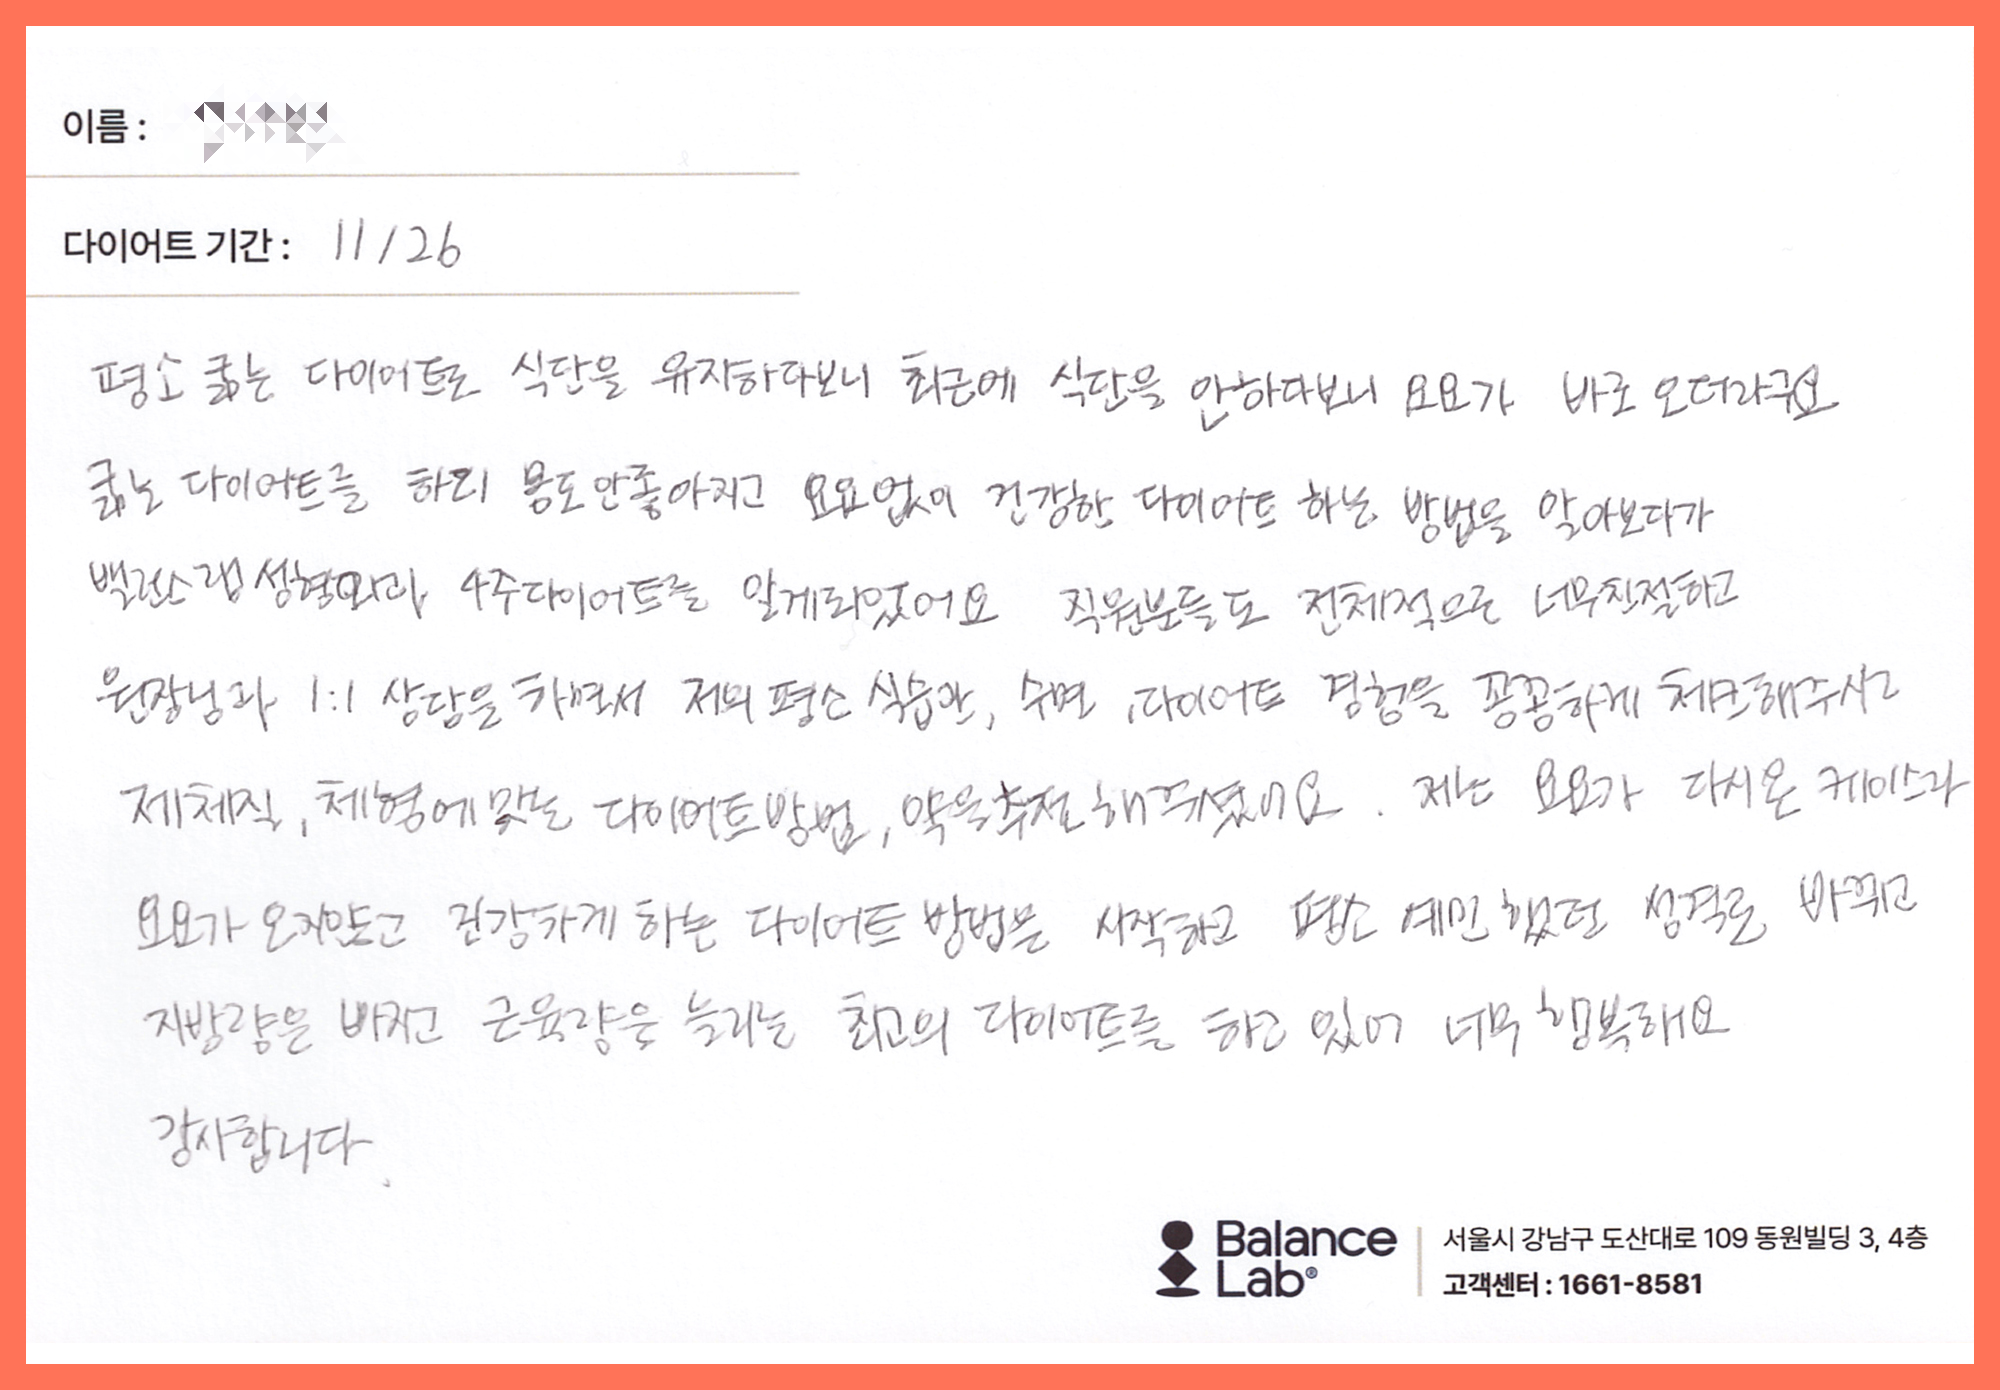 이름 :
다이어트 기간 : 11/26
평소 굶는 다이어트로 식단을 유지하다보니 최근에 식단을 안하다보니 요요가 바로 오더라구요
굶는 다이어트를 하니 몸도안좋아지고 요요없이 건강한 다이어트 하는 방법을 알아보다가
밸런스랩 성형외과 4주다이어트를 알게되었어요 직원분들도 전체적으로 너무친절하고
원장님과 1:1 상담을 하면서 저의 평소 식습관, 수면, 다이어트 경험을 꼼꼼하게 체크해주시고
제체질, 체형에맞는 다이어트방법, 약을추천해주셨어요. 저는 요요가 다시온 케이스라
요요가 오지않고 건강하게 하는 다이어트 방법을 시작하고 평소 예민했던 성격도 바뀌고
지방량은 빠지고 근육량은 늘리는 최고의 다이어트를 하고 있어 너무 행복해요
감사합니다.
Balance Lab®
서울시 강남구 도산대로 109 동원빌딩 3, 4층
고객센터 : 1661-8581